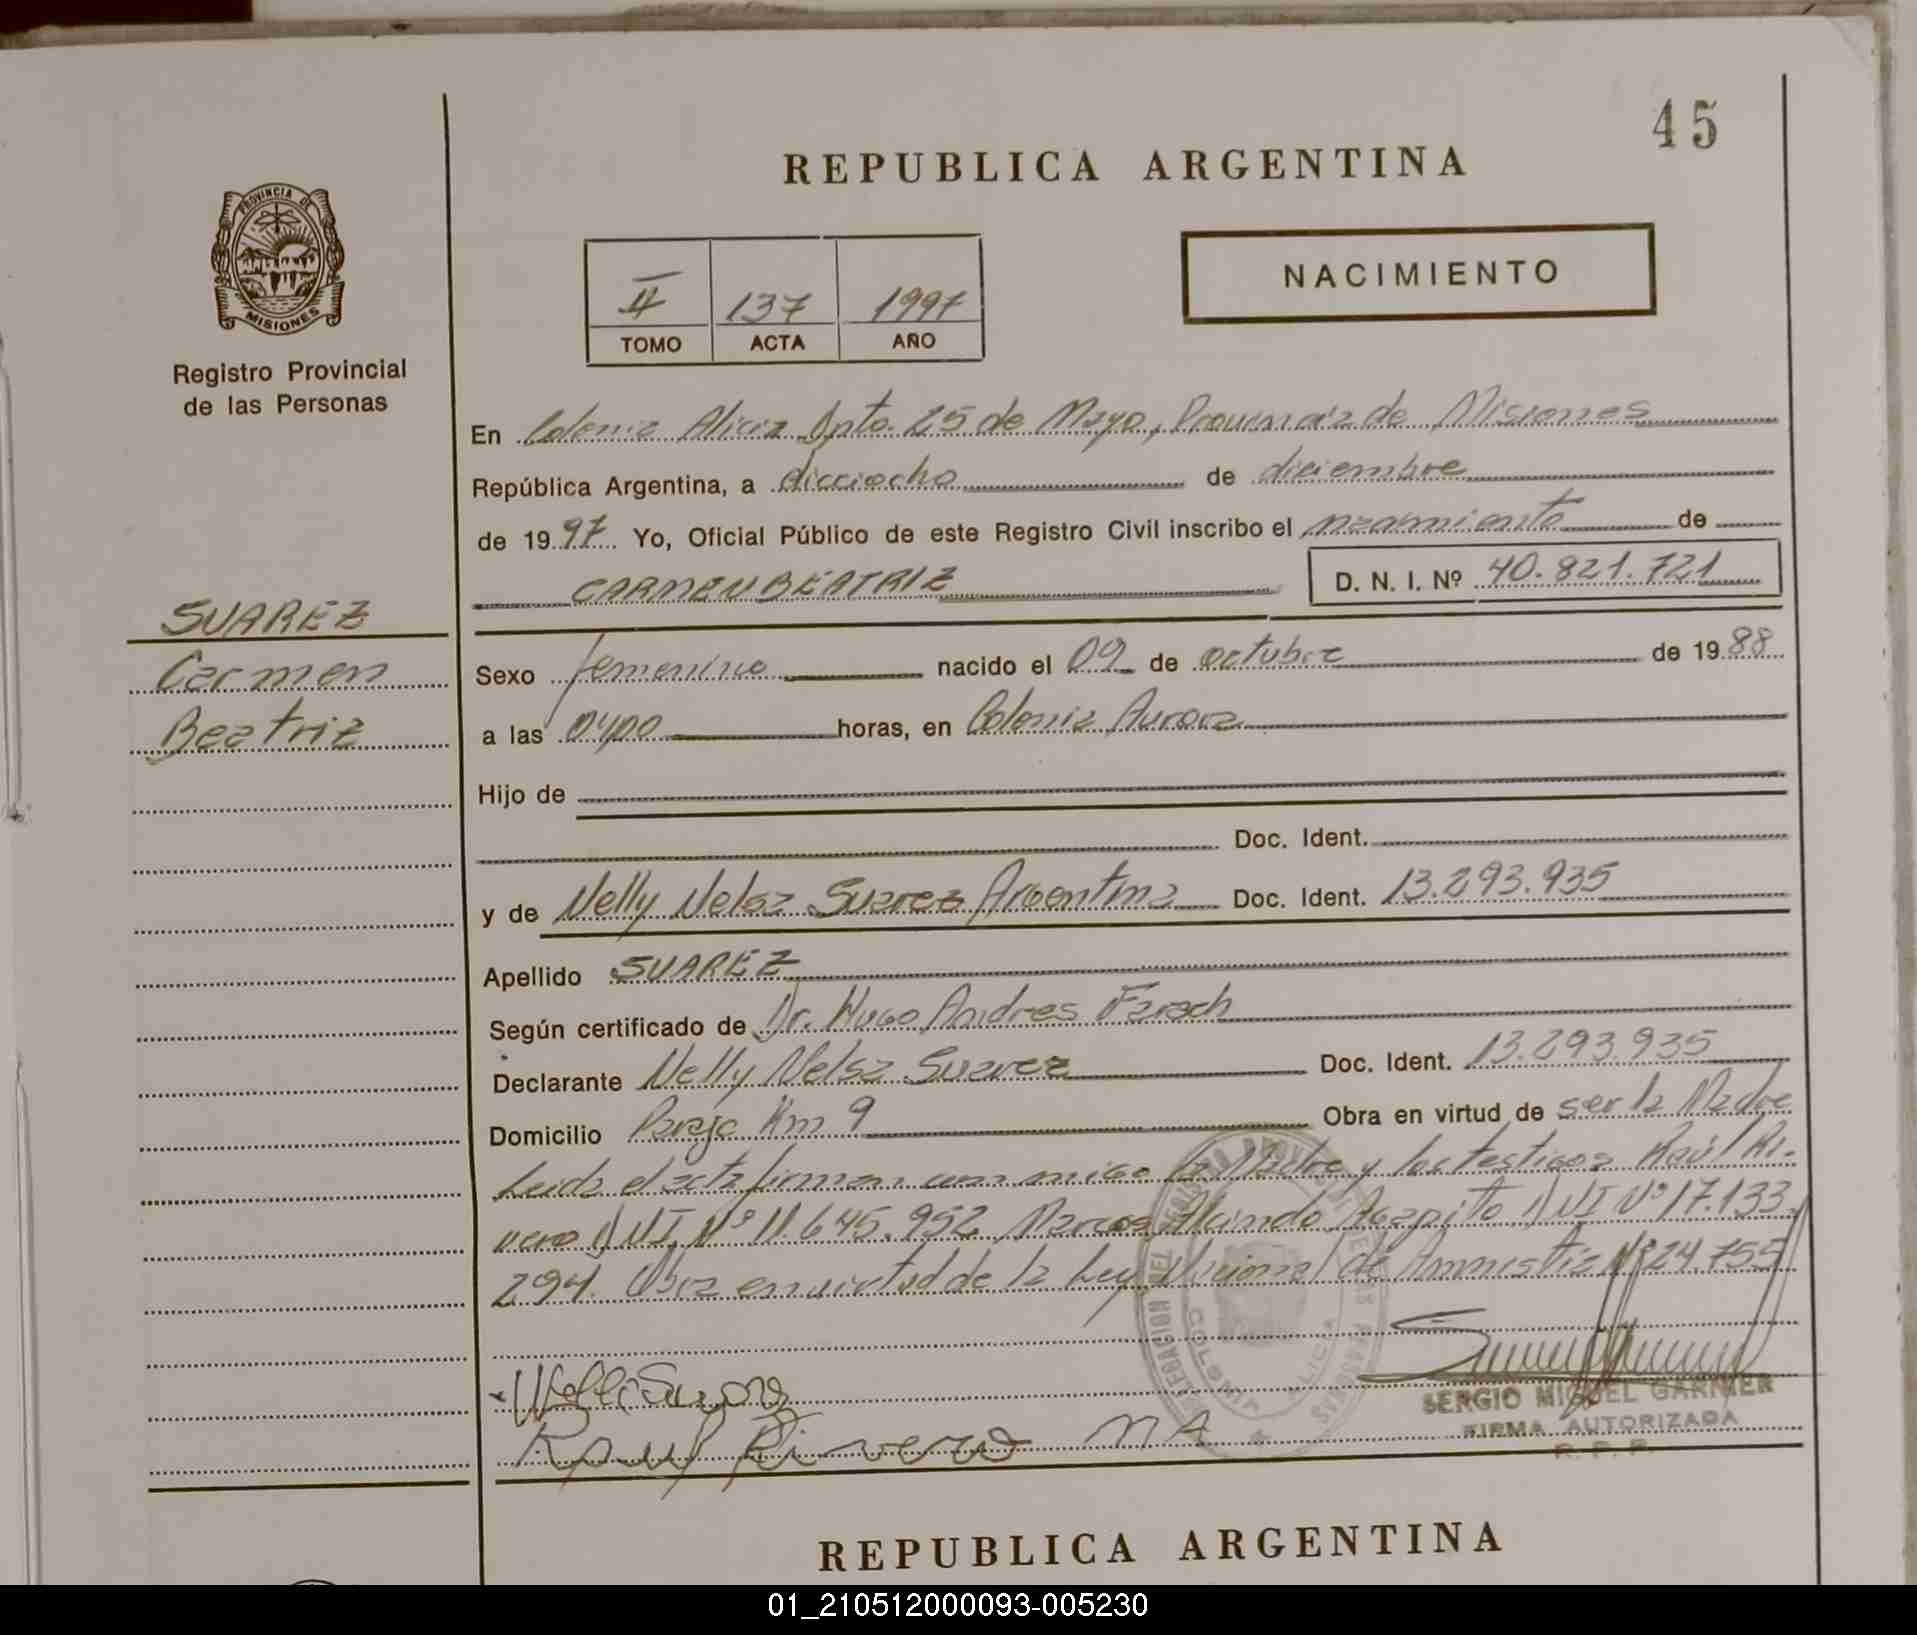 45
REPUBLICA ARGENTINA
PROVINCIA DE
MISIONES
Registro Provincial
de las Personas
II 137 1997
TOMO ACTA AÑO
NACIMIENTO
En Colonia Alicia Dpto. 25 de Mayo, Provincia de Misiones
República Argentina, a dieciocho de diciembre
de 1997 Yo, Oficial Público de este Registro Civil inscribo el nacimiento de
CARMEN BEATRIZ D. N. I. Nº 40.821.721
SUAREZ
Carmen
Beatriz
Sexo femenino nacido el 09 de octubre de 1988
a las horas, en Colonia Aurora
Hijo de
Doc. Ident.
y de Nelly Nelsa Suarez Argentina Doc. Ident. 13.293.935
Apellido SUAREZ
Según certificado de Dr. Hugo Andres Farach
Declarante Nelly Nelsa Suarez Doc. Ident. 13.293.935
Domicilio Paraje Km 9 Obra en virtud de ser la Madre
Leida el acta firman con migo la Madre y los testigos Raúl Ri-
vero DNI Nº 11.645.952 Marcos Alcindo Agapito DNI Nº 17.133.
294. Obra en virtud de la Ley Nacional de Amnistia Nº 24.755
COLONIA ALICIA
SERGIO MIGUEL GARNIER
FIRMA AUTORIZADA
R. P. P.
Raul Rivero MA
REPUBLICA ARGENTINA
01_210512000093-005230